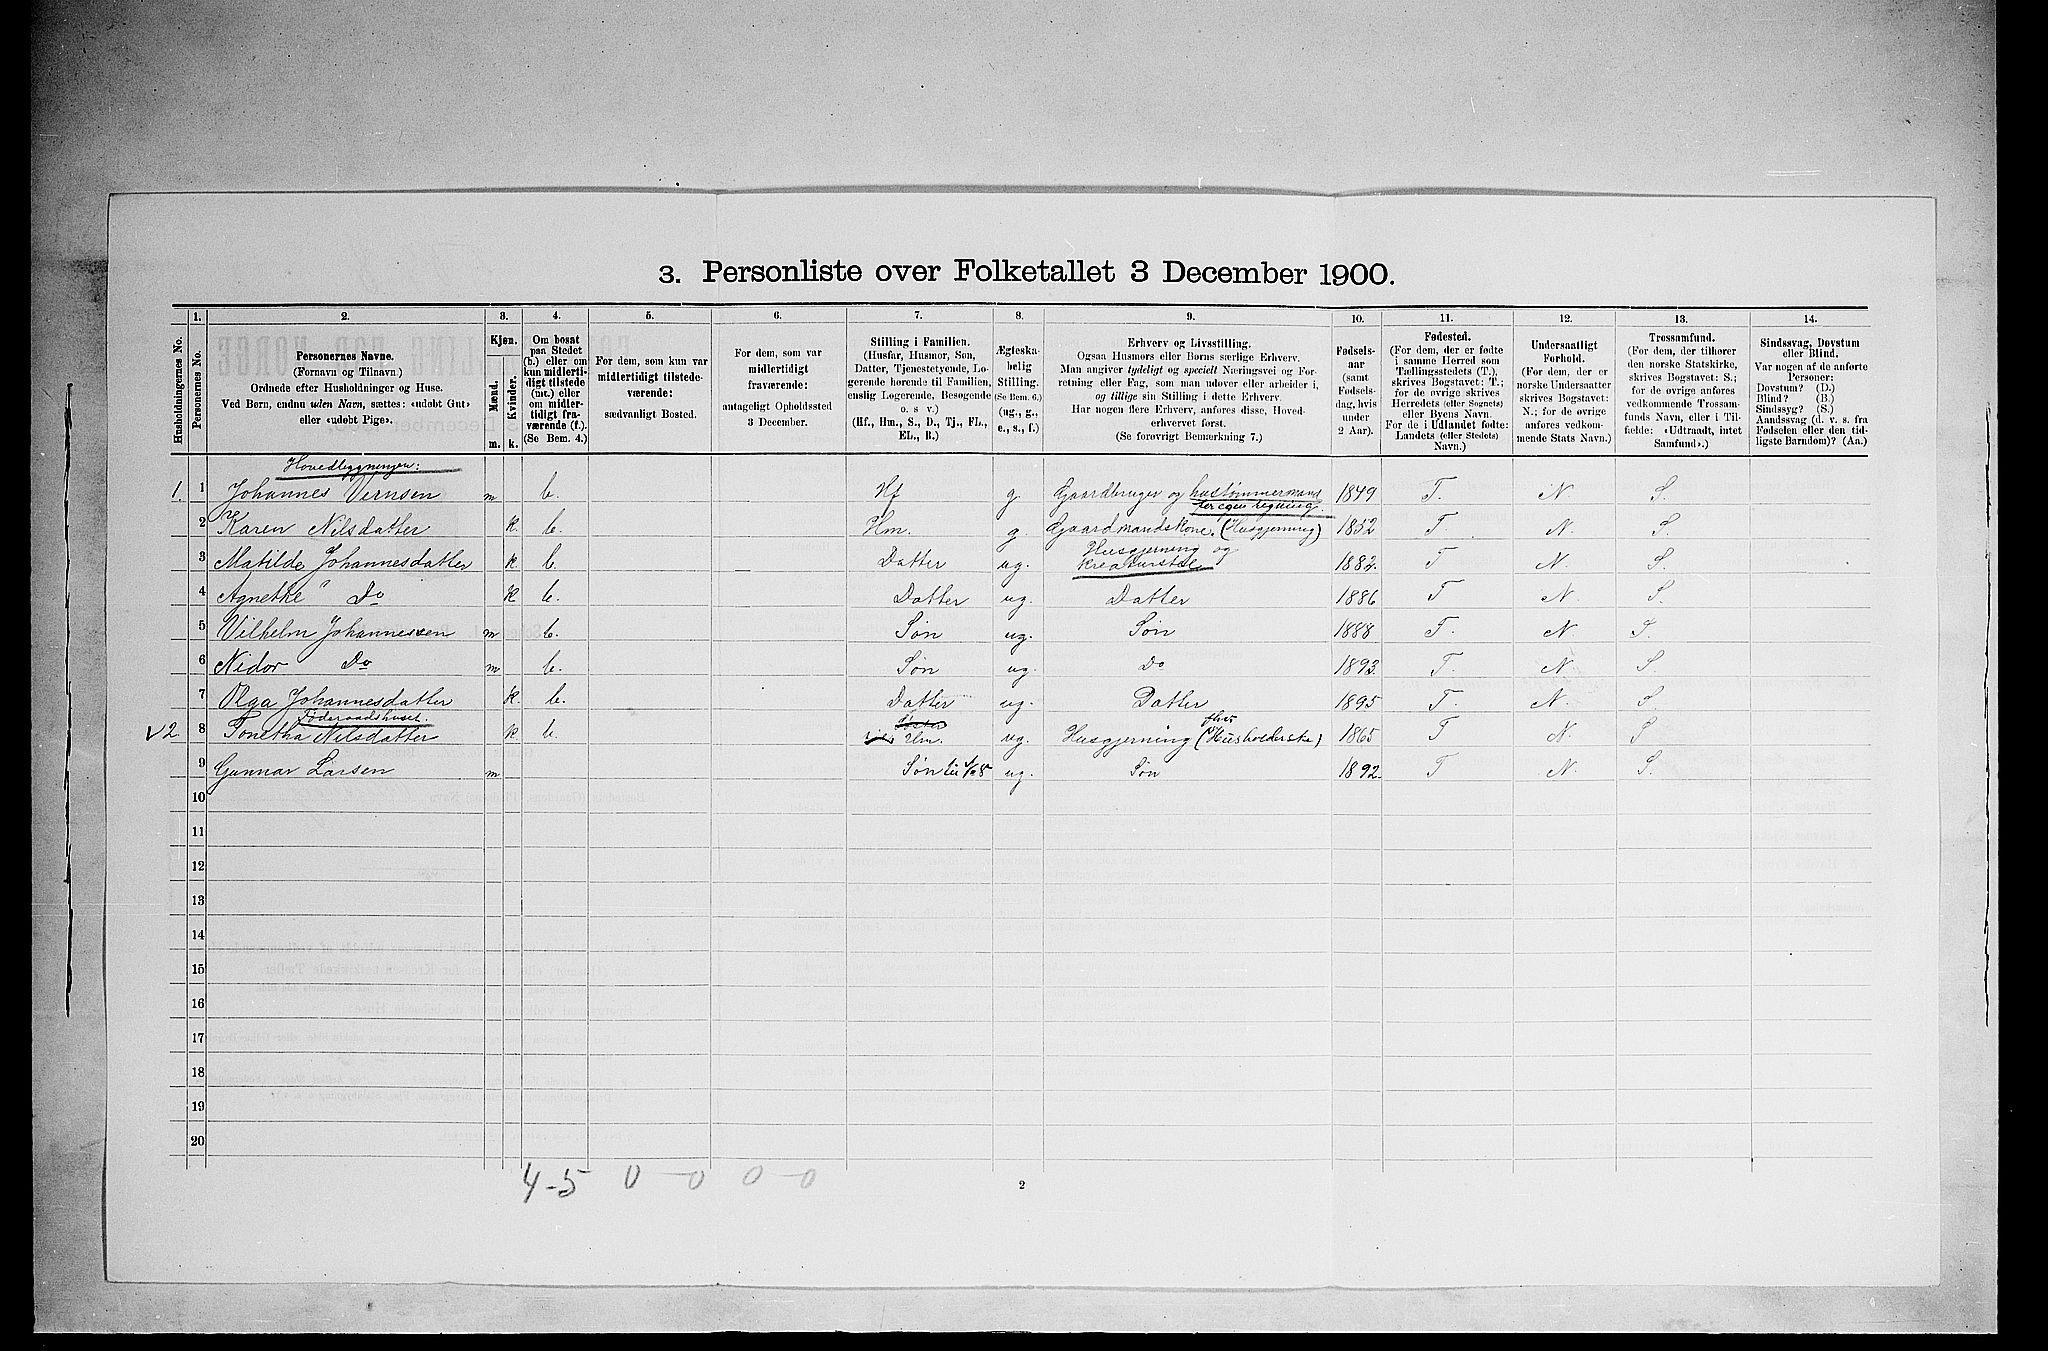 3. Personliste over Folketallet 3 December 1900.
Husholdningernes No.
1.
Personernes No.
2.
Personernes Navne.
(Fornavn og Tilnavn.)
Ordnede efter Husholdninger og Huse.
Ved Børn, endnu uden Navn, sættes: «udøbt Gut»
eller «udøbt Pige».
3.
Kjøn.
Mænd.
Kvinder.
m. k.
4.
Om bosat
paa Stedet
(b.) eller om
kun midlerti-
digt tilstede
(mt.) eller
om midler-
tidigt fra-
værende (f.).
(Se Bem. 4.)
5.
For dem, som kun var
midlertidigt tilstede-
værende:
sædvanligt Bosted.
6.
For dem, som var
midlertidigt
fraværende:
antageligt Opholdssted
3 December.
7.
Stilling i Familien.
(Husfar, Husmor, Søn,
Datter, Tjenestetyende, Lo-
gerende hørende til Familien,
enslig Logerende, Besøgende
o. s v.)
(Hf., Hm., S., D., Tj., FL.,
EL., B.)
8.
Ægteska-
belig
Stilling.
(Se Bem. 6.)
(ug., g.,
e., s., f.)
9.
Erhverv og Livsstilling.
Ogsaa Husmors eller Børns særlige Erhverv.
Man angiver tydeligt og specielt Næringsvei og For-
retning eller Fag, som man udøver eller arbeider i,
og tillige sin Stilling i dette Erhverv.
Har nogen flere Erhverv, anføres disse, Hoved-
erhvervet først.
(Se forøvrigt Bemærkning 7.)
10.
Fødsels-
aar
(samt
Fødsels-
dag, hvis
under
2 Aar).
11.
Fødested.
(For dem, der er fødte
i samme Herred som
Tællingsstedets (T.),
skrives Bogstavet: T.;
for de øvrige skrives
Herredets (eller Sognets)
eller Byens Navn.
For de i Udlandet fødte:
Landets (eller Stedets)
Navn.)
12.
Undersaatligt
Forhold.
(For dem, der er
norske Undersaatter
skrives Bogstavet:
N.; for de øvrige
anføres vedkom-
mende Stats Navn.)
13.
Trossamfund.
(For dem, der tilhører
den norske Statskirke,
skrives Bogstavet: S.;
for de øvrige anføres
vedkommende Trossam-
funds Navn, eller i Til-
fælde: «Udtraadt, intet
Samfund».)
14.
Sindssvag, Døvstum
eller Blind.
Var nogen af de anførte
Personer:
Døvstum? (D.)
Blind? (B.)
Sindssyg? (S.)
Aandssvag (d. v. s. fra
Fødselen eller den tid-
ligste Barndom)? (Aa.)
Hovedbygningen:
1. 1 Johannes Vernsen m b. Hf g Gaardbruger og hustømmermand for egen regning. 1849 T. N. S.
2 Karen Nilsdatter k. b. Hm. g. Gaardmandskone. (Husgjerning) 1852 T. N. S.
3 Matilde Johannesdatter k b. Datter ug. Husgjerning og Kreaturstel 1882. T N. S.
4 Agnethe Do k b. Datter ug. Datter 1886 T N. S.
5 Vilhelm Johannessen m b. Søn ug. Søn 1888 T. N. S.
6 Nidor Do m b. Søn ug. Do 1893. T. N. S
7 Olga Johannesdatter k. b. Datter ug. Datter 1895 T. N. S.
Føderaadshuset.
v2 8 Tonetha Nilsdatter k b. Hm. ug. Husgjerning (Husholderske) 1865 T N. S
9 Gunnar Larsen m Søn ug. Søn 1892. T N. S.
10
11
12
13
14
15
16
17
18
19
20
4-5 0-0 0-0
2